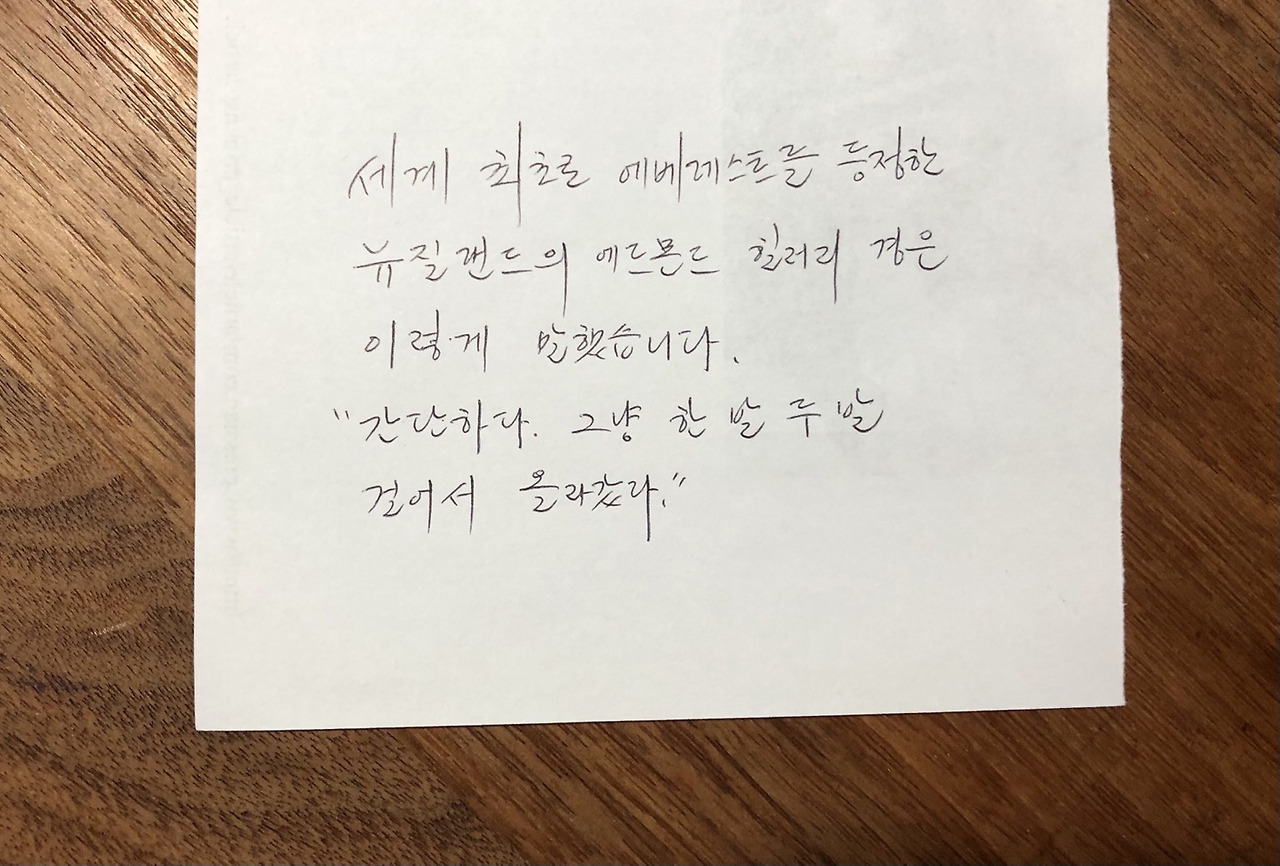 세계 최초로 에베레스트를 등정한
뉴질랜드의 에드몬드 힐러리 경은
이렇게 말했습니다.
"간단하다. 그냥 한 발 두 발
걸어서 올라갔다."